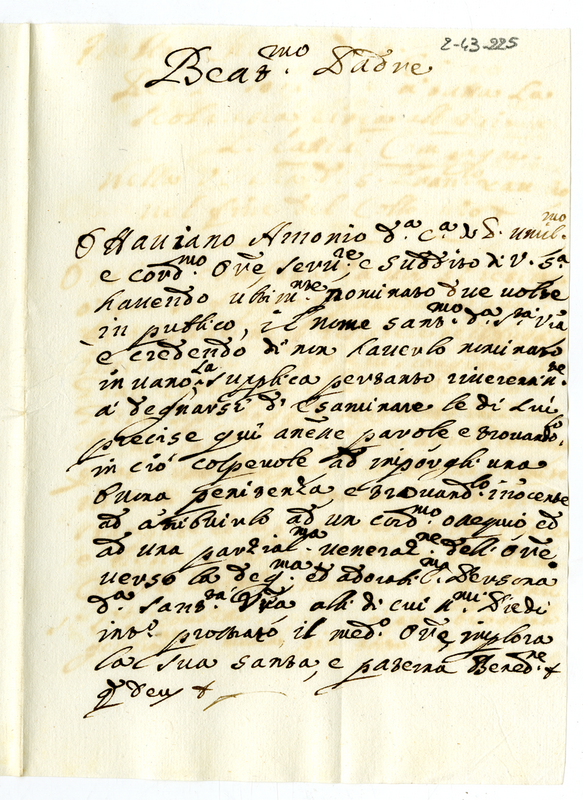 2-43-225
Beat.mo Padre
Ottaviano Antonio d.a C.a di D. umil.mo
e cord.mo Ore serv.re, e suddito di V. S.a
havendo ultim.nte nominato due volte
in publico, il nome sant.mo d.a S.ta V.ra
e credendo di non haverlo nominato
in vano, La supplica pertanto riverentm.te
à degnarsi d'esaminare le di lui
precise quì anesse parole e trovando,
in ciò colpevole ad imporgli una
buona penitenza, e trovand.lo inocente
ad atribuirlo ad un cord.mo ossequio ed
ad una parzial.ma veneraz.ne dell'Ore
verso la deg.ma ed adorabil.ma Persona
d.a Sant.tà V.ra alli di cui S.mi Piedi
int.o prostrato, il med.o Ore implora
la sua santa, e paterna Bened.ne +
q. deus +